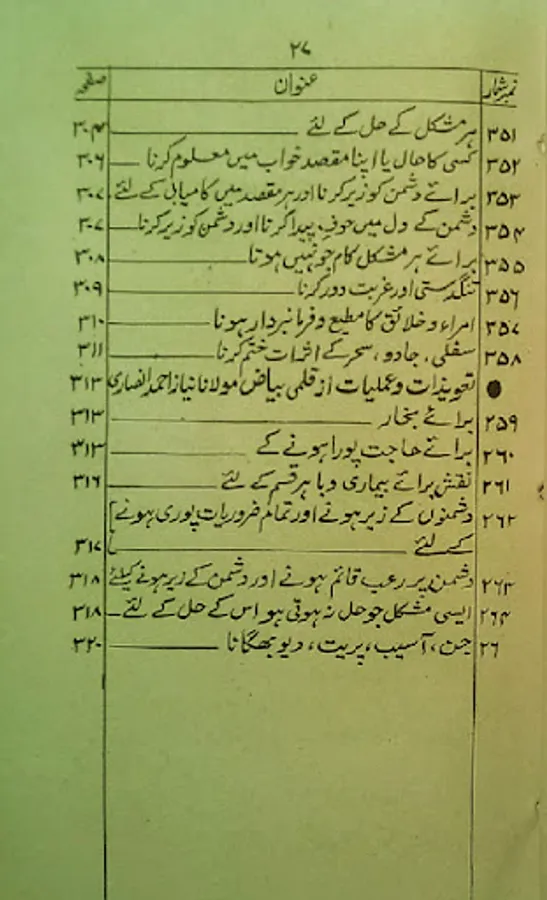 ۲۷
نمبر شمار عنوان صفحہ
۳۵۱ ہر مشکل کے حل کے لئے ۳۰۴
۳۵۲ کسی کا حال یا اپنا مقصد خواب میں معلوم کرنا ۳۰۶
۳۵۳ برائے دشمن کو زیر کرنا اور ہر مقصد میں کامیابی کے لئے ۳۰۷
۳۵۴ دشمن کے دل میں خوف پیدا کرنا اور دشمن کو زیر کرنا ۳۰۷
۳۵۵ برائے ہر مشکل کام جو نہیں ہوتا ۳۰۸
۳۵۶ تنگدستی اور غربت دور کرنا ۳۰۹
۳۵۷ امراء و خلائق کا مطیع و فرمانبردار ہونا ۳۱۰
۳۵۸ سفلی، جادو، سحر کے اثرات ختم کرنا ۳۱۱
● تعویذات و عملیات از قلمی بیاض مولانا نیاز احمد انصاری ۳۱۳
۲۵۹ برائے بخار ۳۱۳
۲۶۰ برائے حاجت پورا ہونے کے ۳۱۳
۲۶۱ نقش برائے بیماری وبا ہر قسم کے لئے ۳۱۶
۲۶۲ دشمنوں کے زیر ہونے اور تمام ضروریات پوری ہونے
کے لئے ۳۱۷
۲۶۳ دشمن پر رعب قائم ہونے اور دشمن کے زیر ہونے کیلئے ۳۱۸
۲۶۴ ایسی مشکل جو حل نہ ہوتی ہو اس کے حل کے لئے ۳۱۸
۲۶ جن، آسیب، پریت، دیو بھگانا ۳۲۰